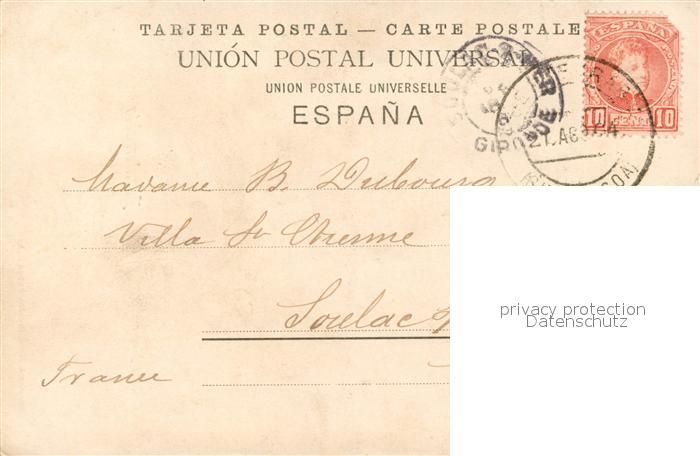 TARJETA POSTAL — CARTE POSTALE
UNIÓN POSTAL UNIVERSAL
UNION POSTALE UNIVERSELLE
ESPAÑA
ESPAÑA
10 CENT. 10
21.AGO
Madame B. Dubourg
Villa St Etienne
Soulac
France
privacy protection
Datenschutz